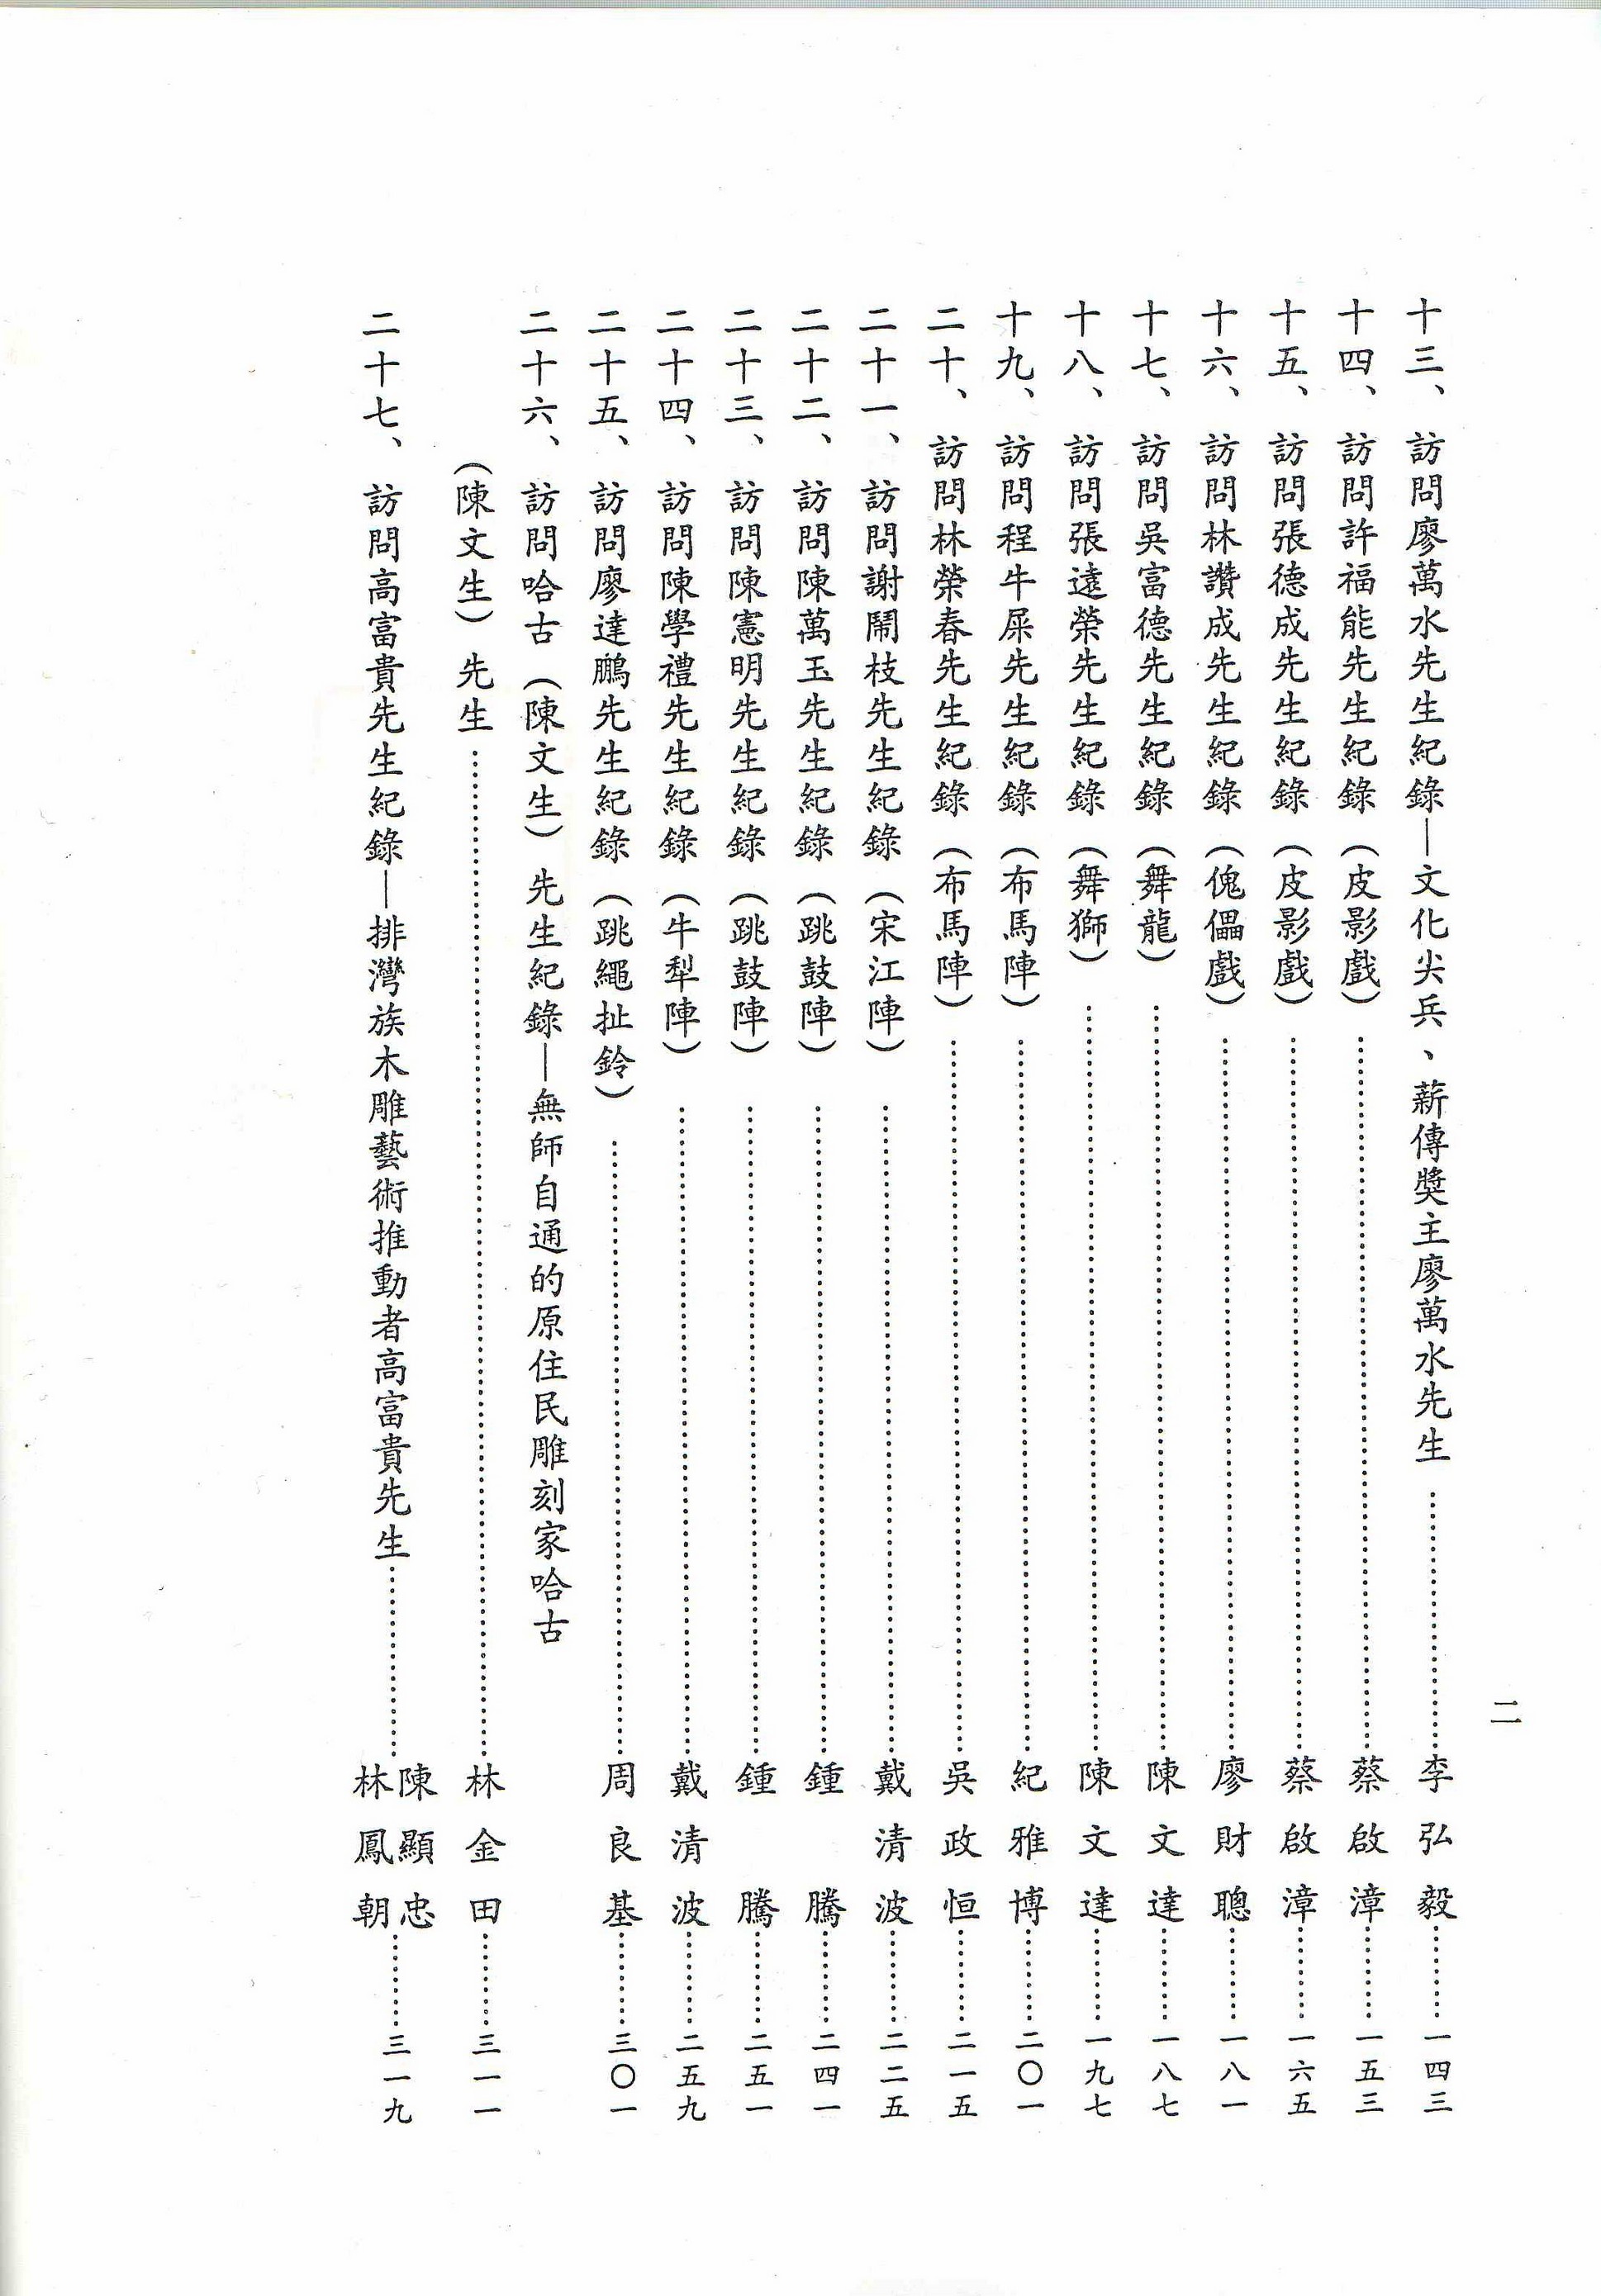 二
十三、訪問廖萬水先生紀錄—文化尖兵、薪傳獎主廖萬水先生……………李弘毅………一四三
十四、訪問許福能先生紀錄（皮影戲）……………蔡啟漳………一五三
十五、訪問張德成先生紀錄（皮影戲）……………蔡啟漳………一六五
十六、訪問林讚成先生紀錄（傀儡戲）……………廖財聰………一八一
十七、訪問吳富德先生紀錄（舞龍）……………陳文達………一八七
十八、訪問張遠榮先生紀錄（舞獅）……………陳文達………一九七
十九、訪問程牛屎先生紀錄（布馬陣）……………紀雅博………二〇一
二十、訪問林榮春先生紀錄（布馬陣）……………吳政恒………二一五
二十一、訪問謝鬧枝先生紀錄（宋江陣）……………戴清波………二二五
二十二、訪問陳萬玉先生紀錄（跳鼓陣）……………鍾騰………二四一
二十三、訪問陳憲明先生紀錄（跳鼓陣）……………鍾騰………二五一
二十四、訪問陳學禮先生紀錄（牛犁陣）……………戴清波………二五九
二十五、訪問廖達鵬先生紀錄（跳繩扯鈴）……………周良基………三〇一
二十六、訪問哈古（陳文生）先生紀錄—無師自通的原住民雕刻家哈古
（陳文生）先生……………林金田………三一一
二十七、訪問高富貴先生紀錄—排灣族木雕藝術推動者高富貴先生……………陳顯忠 林鳳朝………三一九